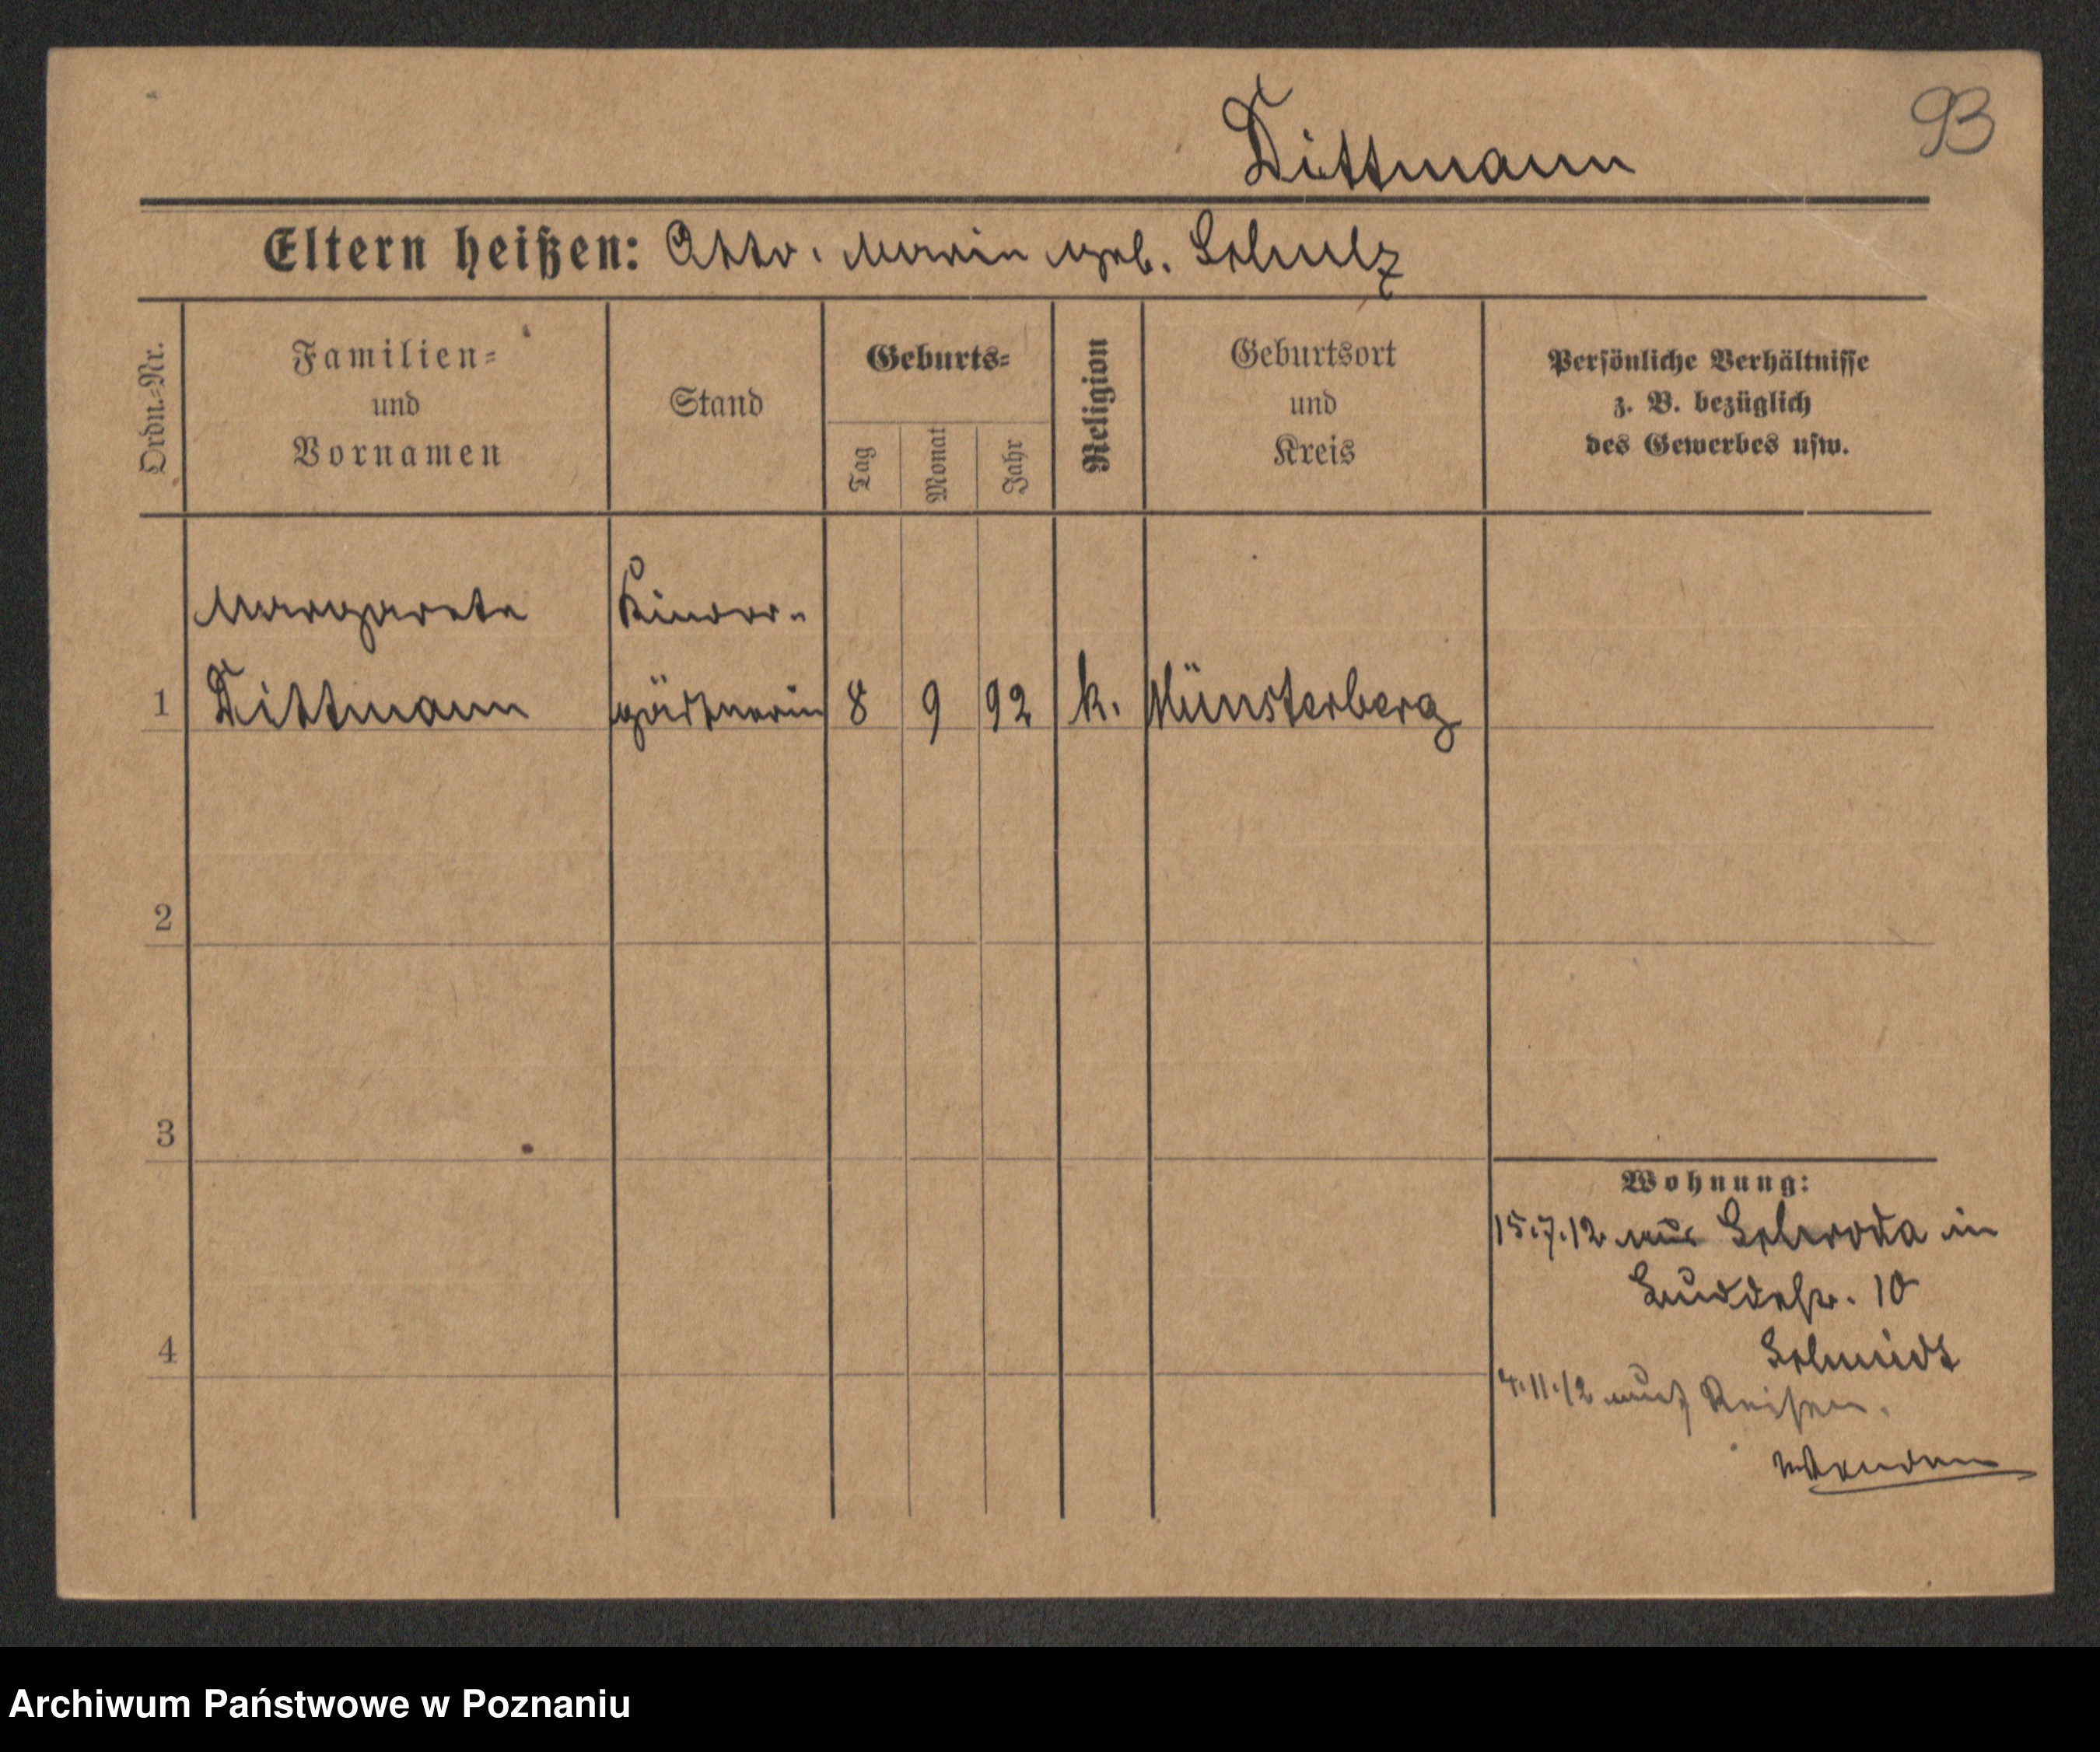 93
Dittmann
Eltern heißen: Otto. Marie geb. Schulz
Ordn.-Nr.
Familien-
und
Vornamen
Stand
Geburts-
Tag
Monat
Jahr
Religion
Geburtsort
und
Kreis
Persönliche Verhältnisse
z. B. bezüglich
des Gewerbes usw.
Margarete Kinder-
1 Dittmann gärtnerin 8 9 92 k. Münsterberg
2
3
4
Wohnung:
15.7.12 aus Schroda in
10
Schmidt
4.11.12 auf Reisen.
wenden
Archiwum Państwowe w Poznaniu